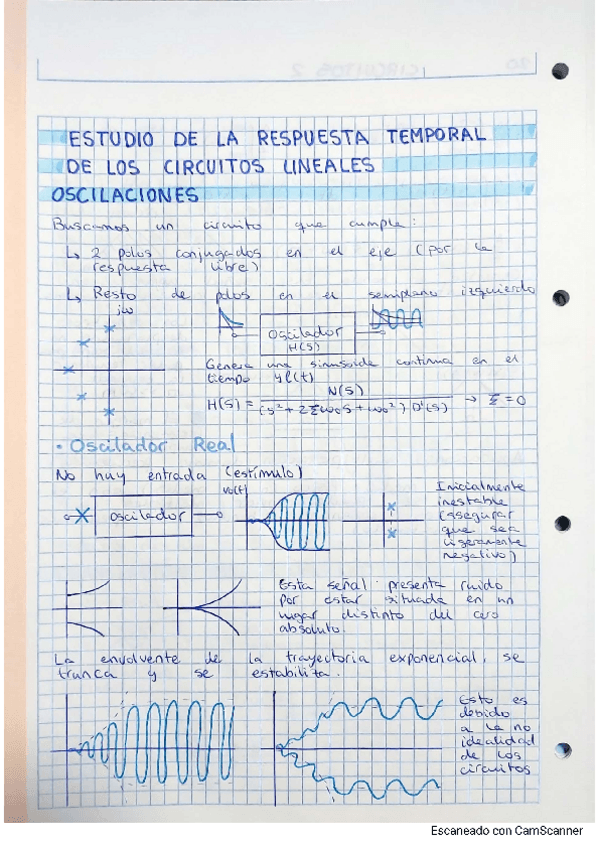 ESTUDIO DE LA RESPUESTA TEMPORAL
DE LOS CIRCUITOS LINEALES
OSCILACIONES
Buscamos un circuito que cumple:
↳ 2 polos conjugados en el eje (por la
respuesta libre)
↳ Resto de polos en el semiplano izquierdo
jω
Oscilador
H(s)
Genera una sinusoide continua en el
tiempo yl(t)
H(s) = N(s) / (s² + 2ξω₀s + ω₀²) D'(s) → ξ = 0
· Oscilador Real
No hay entrada (estímulo)
vo(t)
oscilador
Inicialmente
inestable
(asegurar
que sea
ligeramente
negativo)
Esta señal presenta ruido
por estar situada en un
lugar distinto del cero
absoluto.
La envolvente de la trayectoria exponencial, se
trunca y se estabiliza.
Esto es
debido
a la no
idealidad
de los
circuitos
Escaneado con CamScanner